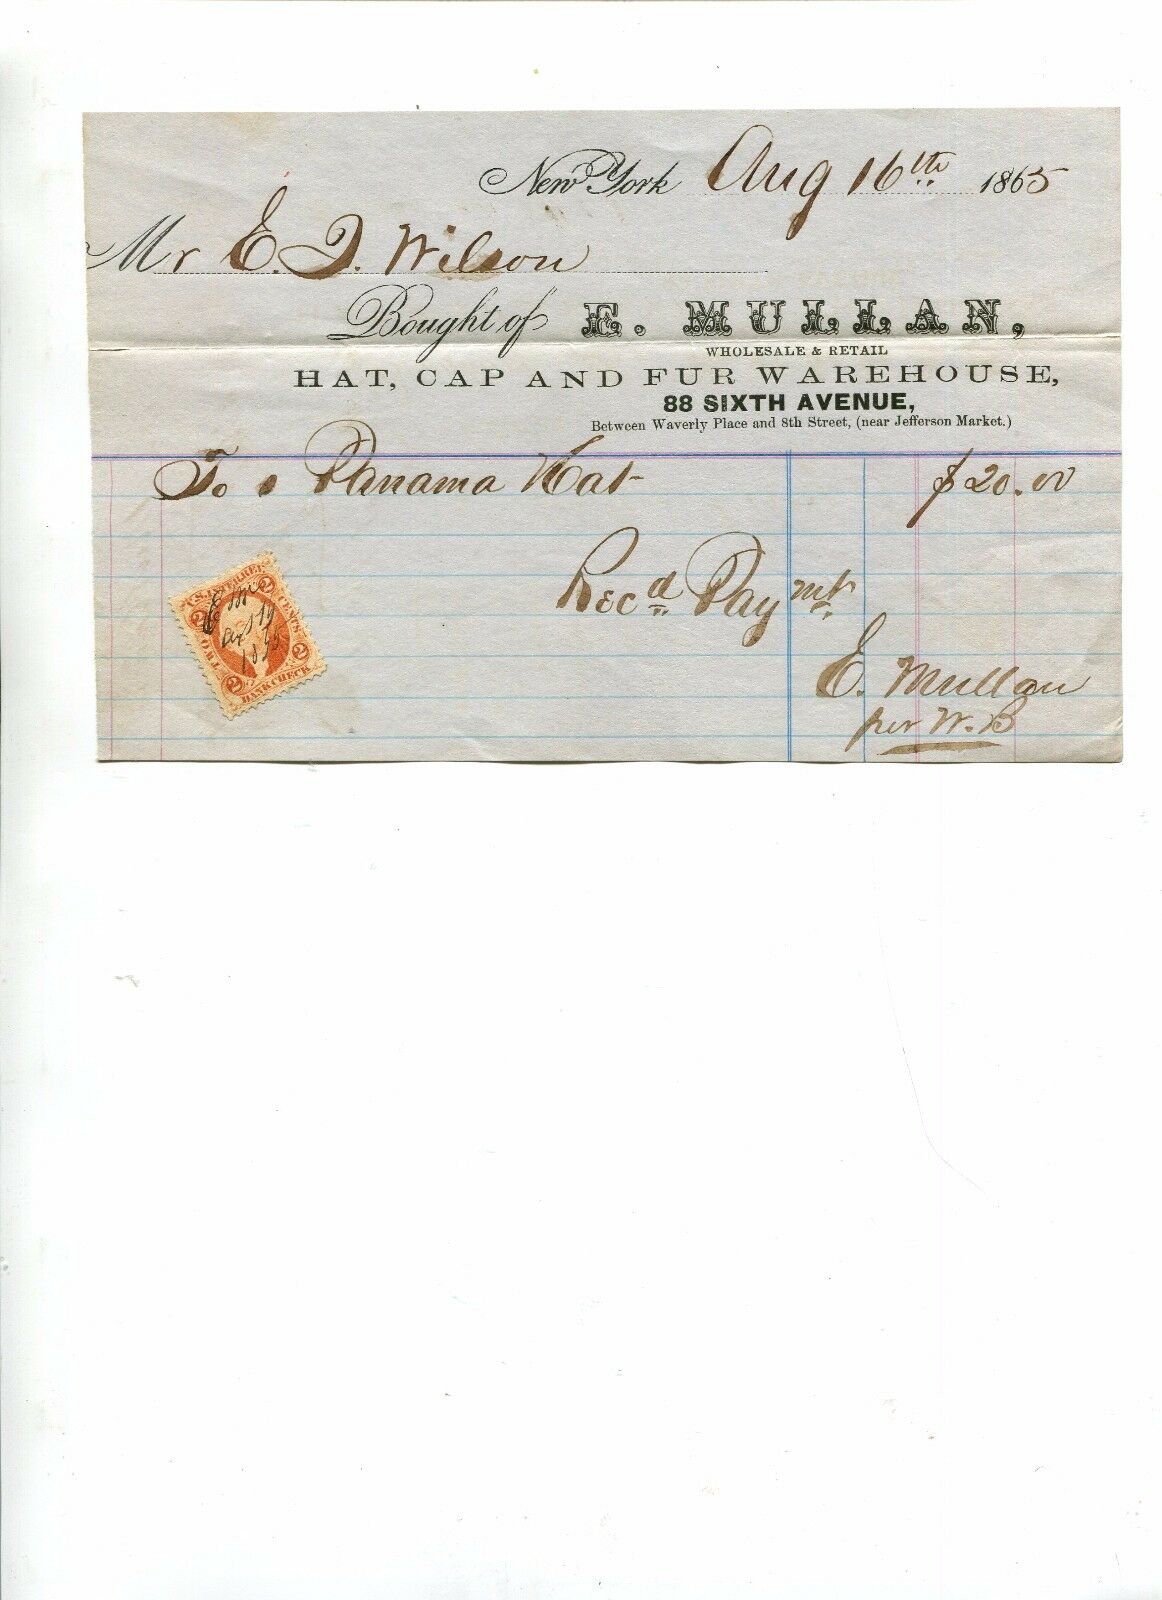 New York Aug 16th 1865
Mr E. J. Wilson
Bought of E. MULLAN,
WHOLESALE & RETAIL
HAT, CAP AND FUR WAREHOUSE,
88 SIXTH AVENUE,
Between Waverly Place and 8th Street, (near Jefferson Market.)
To Panama Hat $20.00
Recd Paymt
E. Mullan
per W. B
U.S. INTER. REV.
2 CENTS 2
TWO
2 BANK CHECK 2
1865